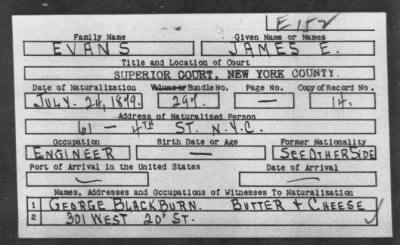 LE152
Family Name Given Name or Names
EVANS JAMES E.
Title and Location of Court
SUPERIOR COURT, NEW YORK COUNTY.
Date of Naturalization Volume or Bundle No. Page No. Copy of Record No.
JULY. 24, 1879. 297. — 14.
Address of Naturalized Person
61 - 4TH ST. N.Y.C.
Occupation Birth Date or Age Former Nationality
ENGINEER — SEE OTHER SIDE
Port of Arrival in the United States Date of Arrival
Names, Addresses and Occupations of Witnesses To Naturalization
1 GEORGE BLACKBURN. BUTTER + CHEESE
2 301 WEST 20" ST.